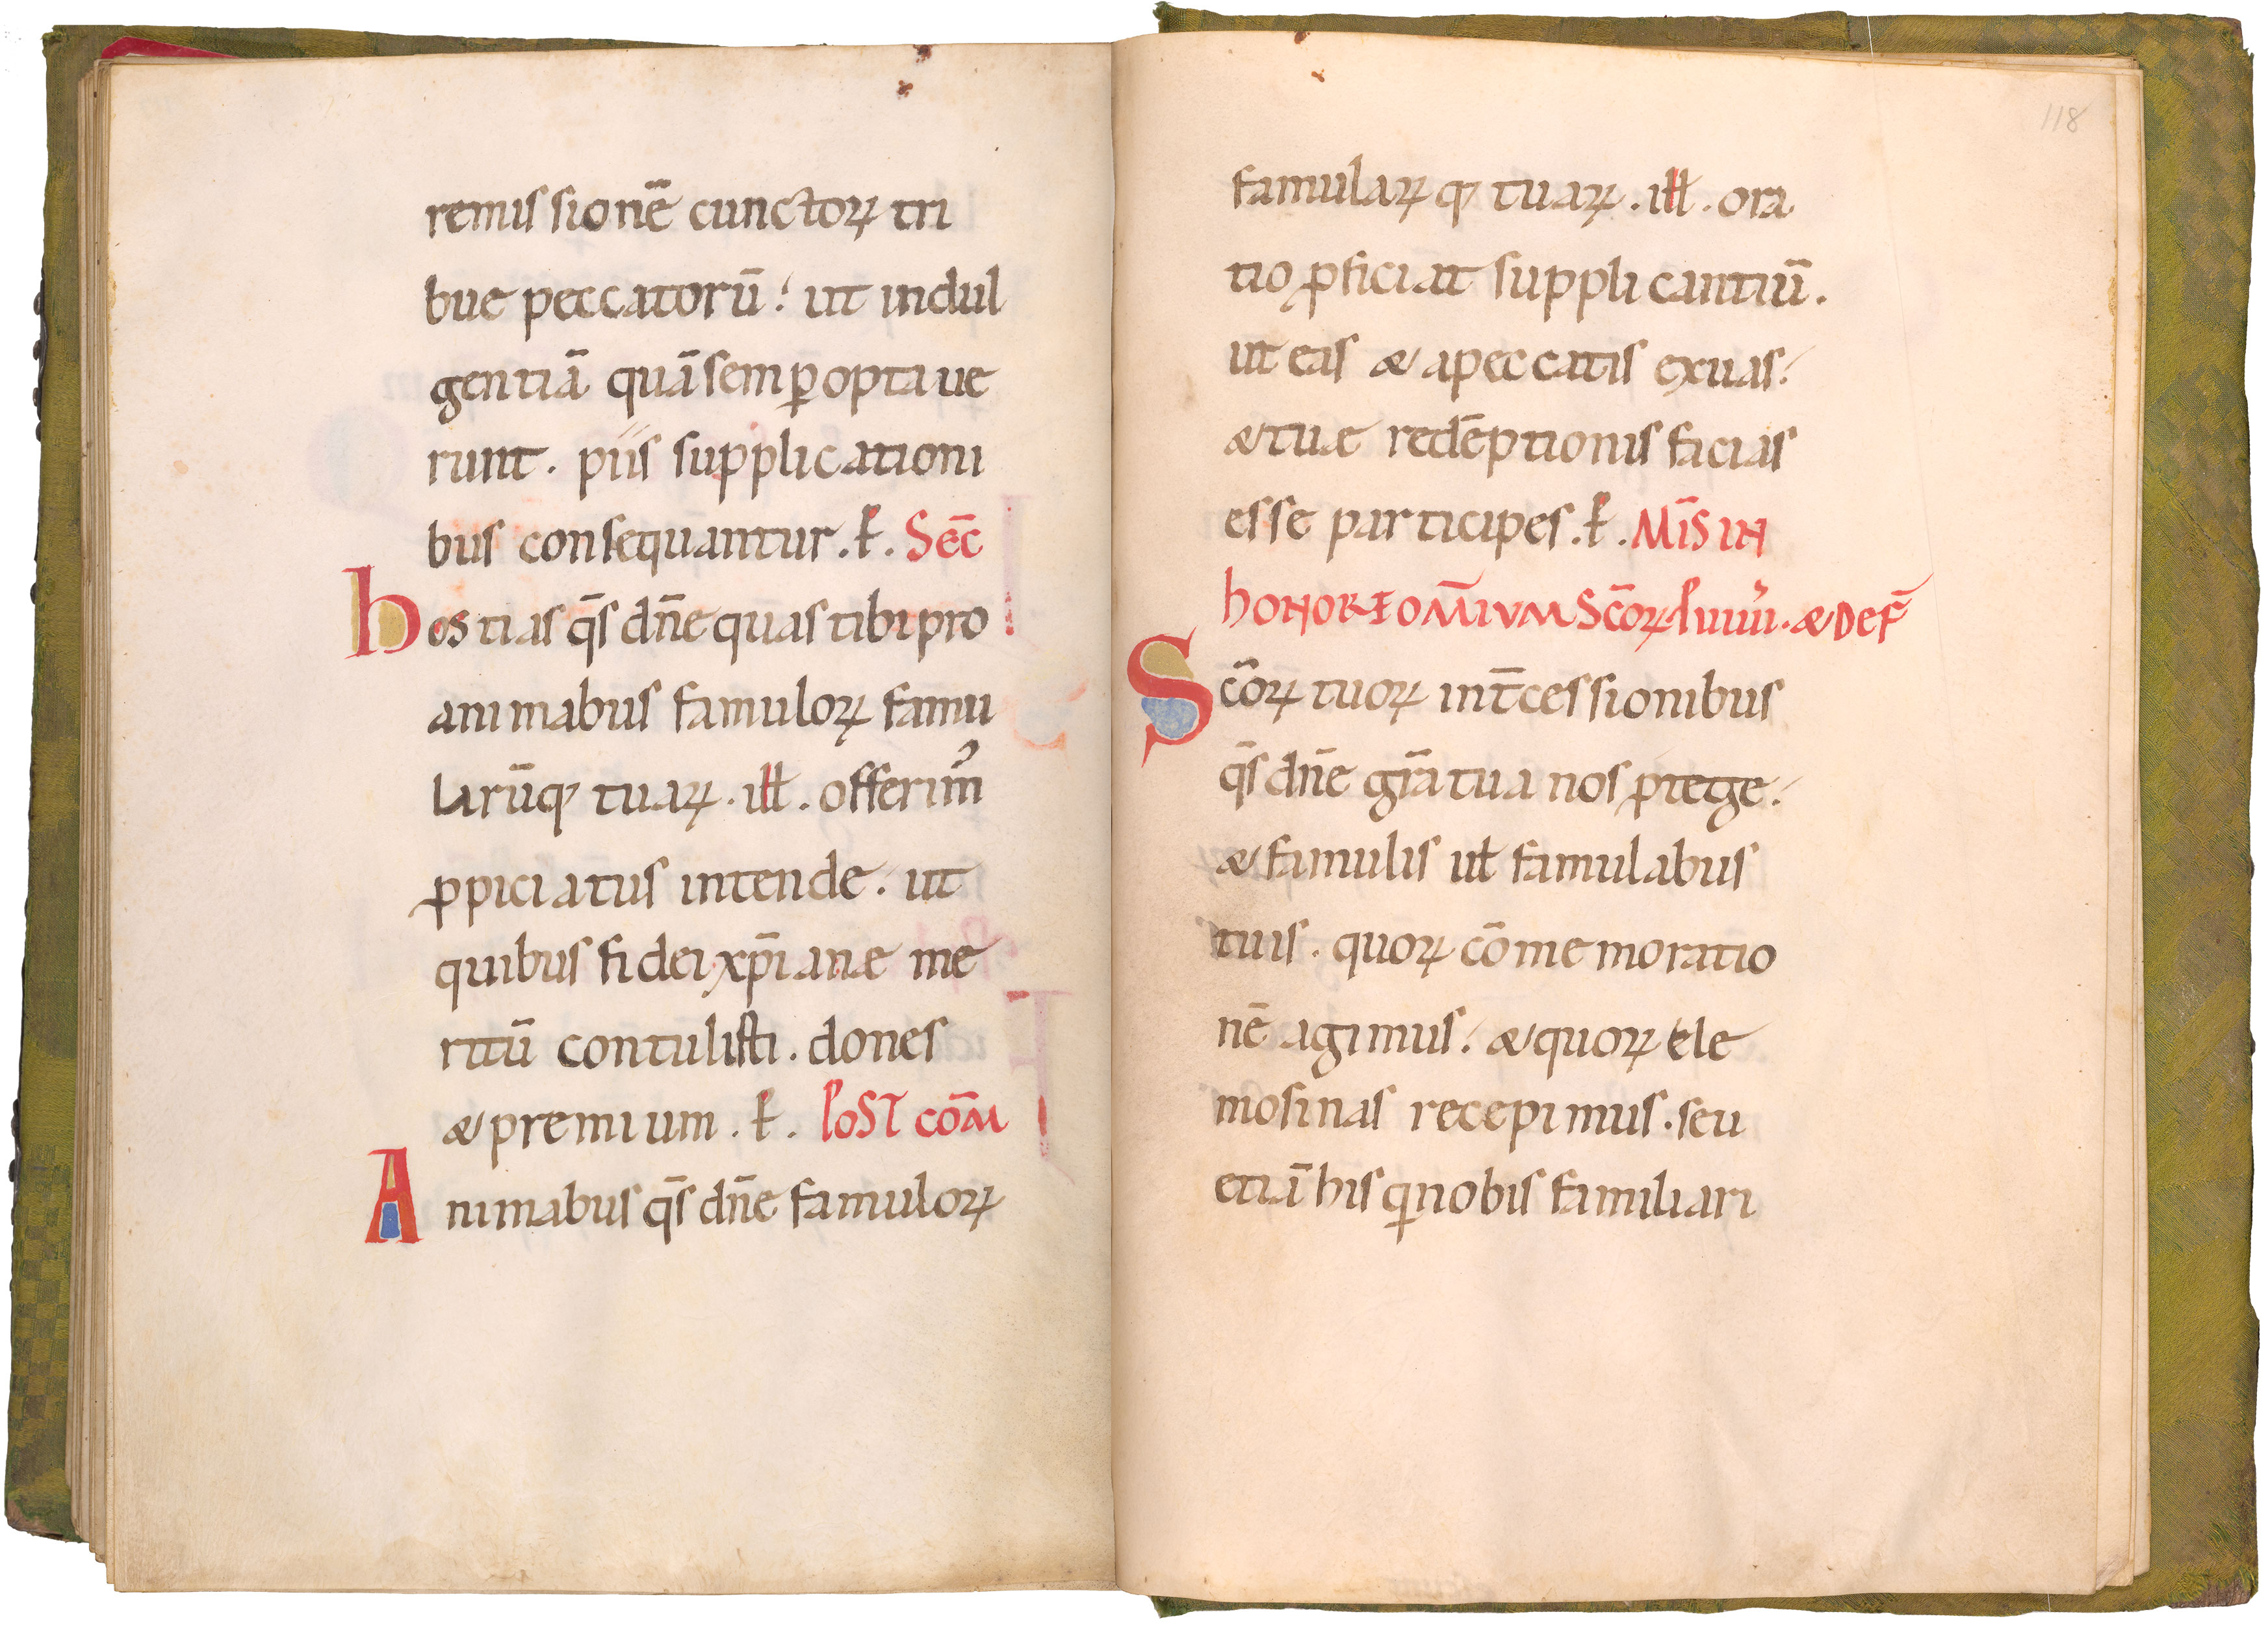 remissionē cunctoꝝ tri
bue peccatorū. ut indul
gentiā quā semꝑ optaue
runt. piis supplicationi
bus consequantur. ꝑ. Sēc
hostias q̄s dn̄e quas tibi pro
animabus famuloꝝ famu
larūq; tuaꝝ. ill. offerim᾽
ꝓpiciatus intende. ut
quibus fidei xp̄ianæ me
ritū contulisti. dones
& premium. ꝑ. POST COM̄
Animabus q̄s dn̄e famuloꝝ
118
famulaꝝq; tuaꝝ. ill. ora
tio ꝓficiat supplicantiū.
ut eas & a peccatis exuas.
& tuæ redēptionis facias
esse participes. ꝑ. MIS̄ IN
HONORE OM̄IVM SC̄OꝜ P uiuis. & DEF̄
Sc̄oꝝ tuoꝝ int̄cessionibus
q̄s dn̄e gr̄a tua nos ꝓtege.
& famulis ut famulabus
tuis. quoꝝ cōmemoratio
nē agimus. & quoꝝ ele
mosinas recepimus. seu
etiā his qi nobis familiari